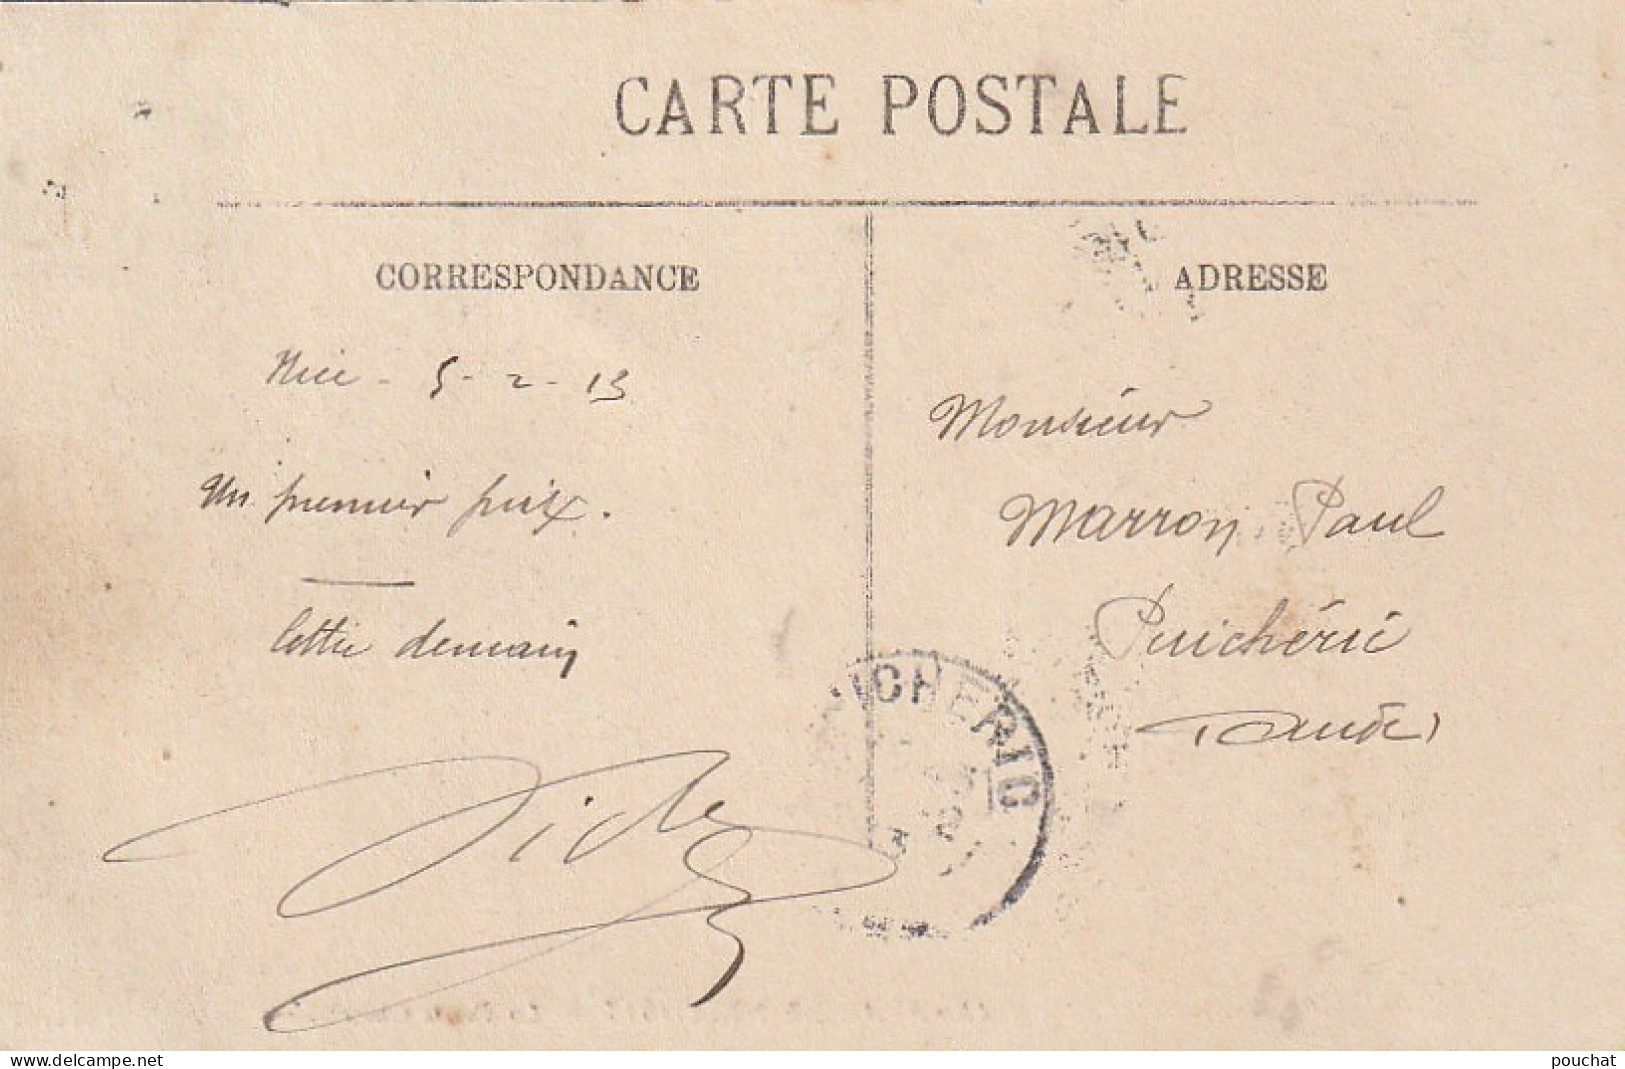 CARTE POSTALE
CORRESPONDANCE
ADRESSE
Nice - 5-2-13
Un premier prix.
lettre demain
Monsieur
Marron Paul
Puichéric
Aude
PUICHERIC
www.delcampe.net
pouchat